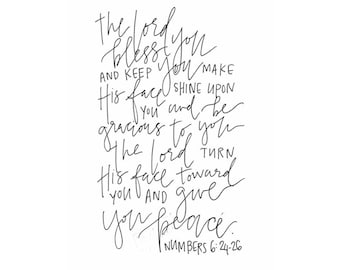 the Lord
bless you
AND KEEP you MAKE
His face SHINE UPON
YOU and be
gracious to you
the Lord TURN
His face toward
YOU AND give
you peace.
NUMBERS 6:24-26